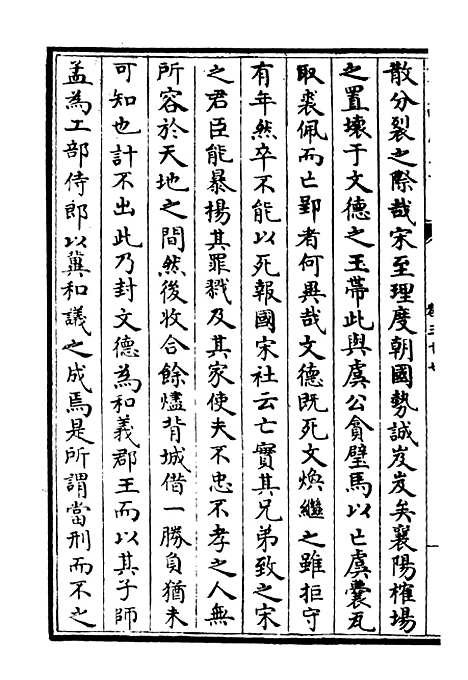 散分裂之際哉宋至理度朝國勢誠岌岌矣襄陽榷場
之置壞于文德之玉帶此與虞公貪璧馬以亡虞囊瓦
取裘佩而亡郢者何異哉文德既死文煥繼之雖拒守
有年然卒不能以死報國宋社云亡實其兄弟致之宋
之君臣能暴揚其罪戮及其家使夫不忠不孝之人無
所容於天地之間然後收合餘燼背城借一勝負猶未
可知也計不出此乃封文德為和義郡王而以其子師
孟為工部侍郎以冀和議之成焉是所謂當刑而不之